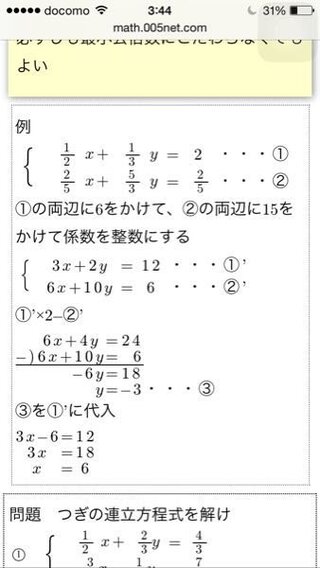 ●●●●● docomo 3:44 31%
math.005net.com
必ずしも最小公倍数にこだわらなくても
よい
例
{ 1/2 x+ 1/3 y = 2 ・・・①
2/5 x+ 5/3 y = 2/5 ・・・②
①の両辺に6をかけて、②の両辺に15を
かけて係数を整数にする
{ 3x+2y = 12 ・・・①'
6x+10y = 6 ・・・②'
①'×2−②'
6x+4y=24
−)6x+10y= 6
−6y=18
y=−3・・・③
③を①'に代入
3x−6=12
3x =18
x = 6
問題 つぎの連立方程式を解け
① { 1/2 x+ 2/3 y = 4/3